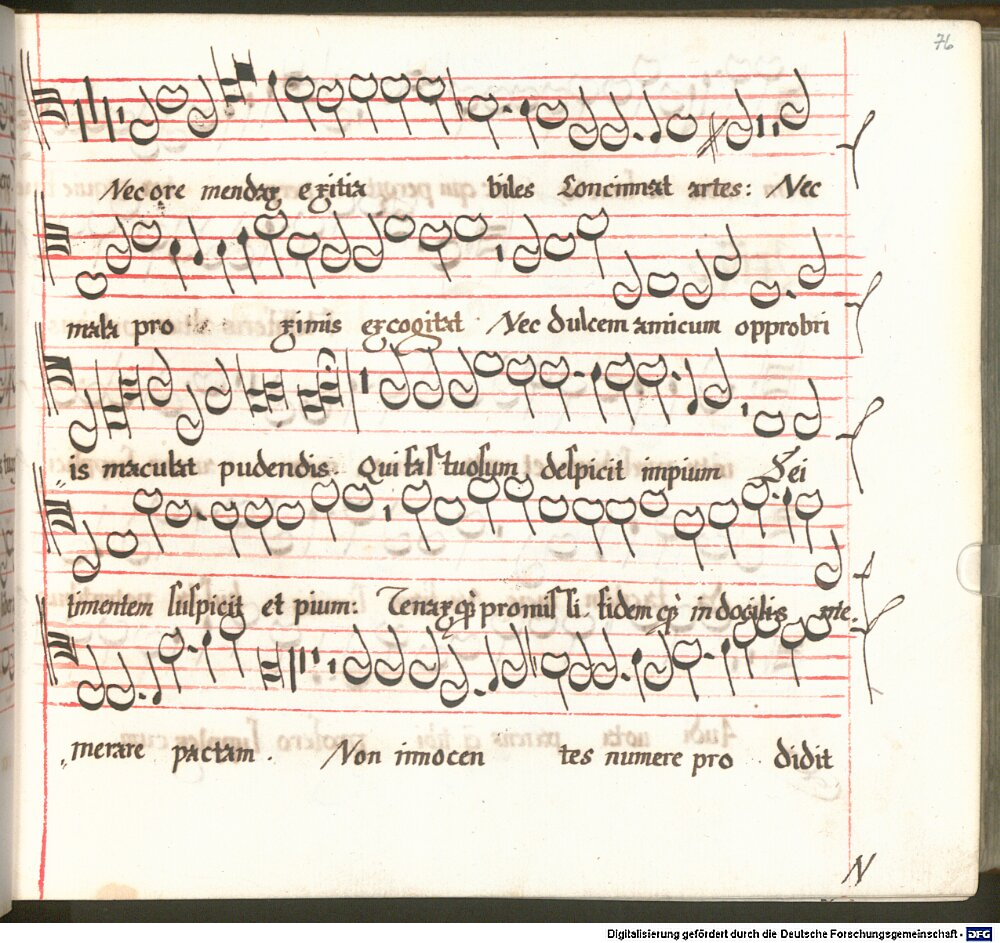 76
Nec ore mendax exitia biles Concinnat artes: Nec
mala pro ximis excogitat Nec dulcem amicum opprobri
is maculat pudendis. Qui fastuosum despicit impium Dei
timentem suspicit et pium: Tenaxqȝ promissi fidemqȝ indocilis inte,
merare pactam. Non innocen tes munere pro didit
N
Digitalisierung gefördert durch die Deutsche Forschungsgemeinschaft - DFG